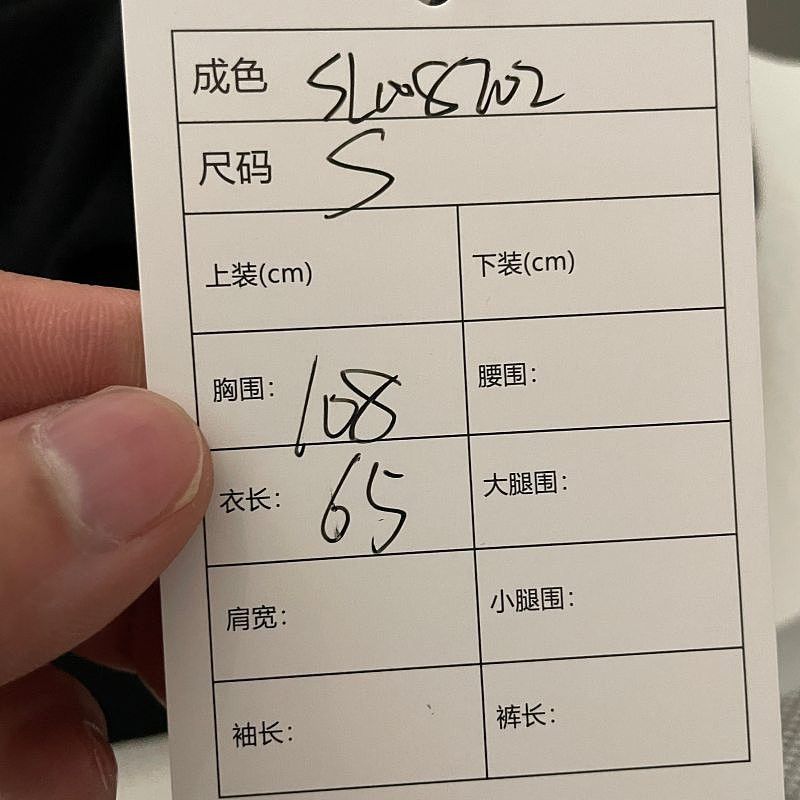 成色 SL008702
尺码 S
上装(cm) 下装(cm)
胸围: 108 腰围:
衣长: 65 大腿围:
肩宽: 小腿围:
袖长: 裤长: